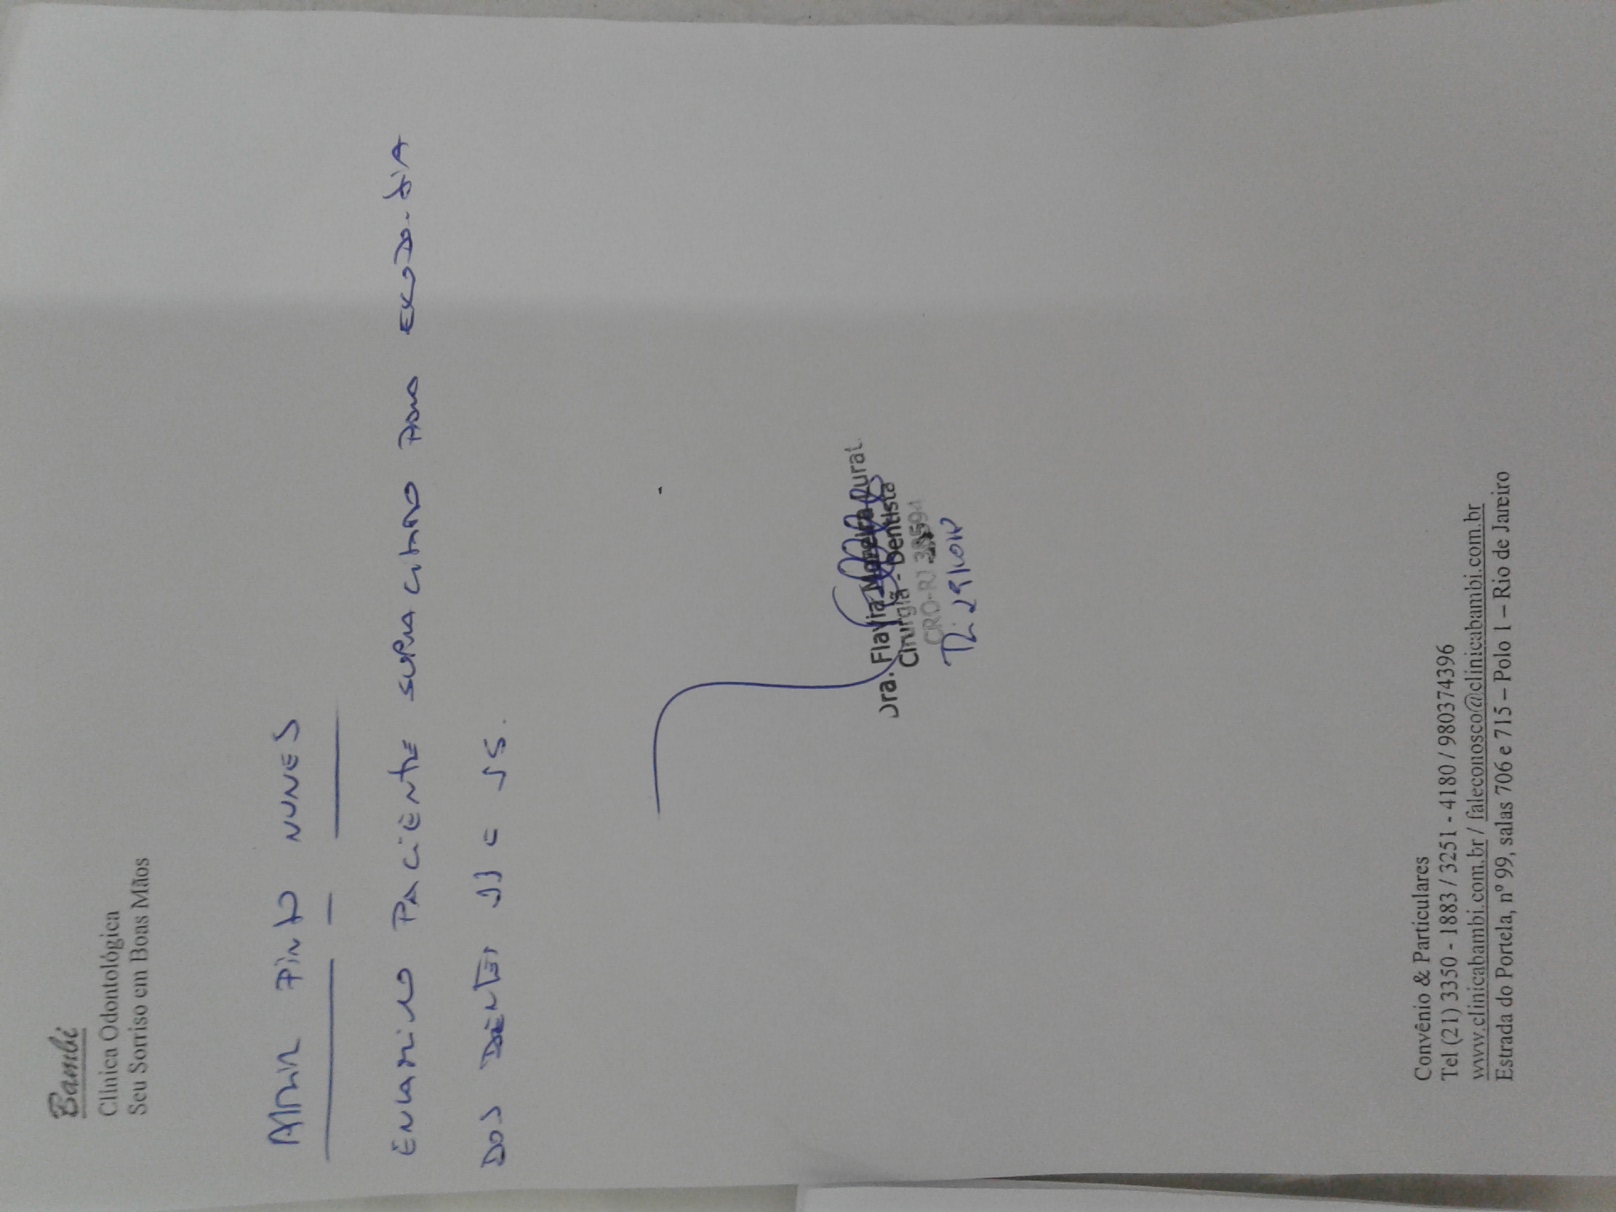 Bambi
Clínica Odontológica
Seu Sorriso em Boas Mãos
PINTO NUNES
ENCAMINHO PACIENTE SUPRA CITADO PARA EXODONTIA
DOS DENTES E
Dra. Flavia Moreira
Cirurgiã - Dentista
CRO-RJ
Convênio & Particulares
Tel (21) 3350 - 1883 / 3251 - 4180 / 980374396
www.clinicabambi.com.br / faleconosco@clinicabambi.com.br
Estrada do Portela, nº 99, salas 706 e 715 – Polo 1 – Rio de Janeiro